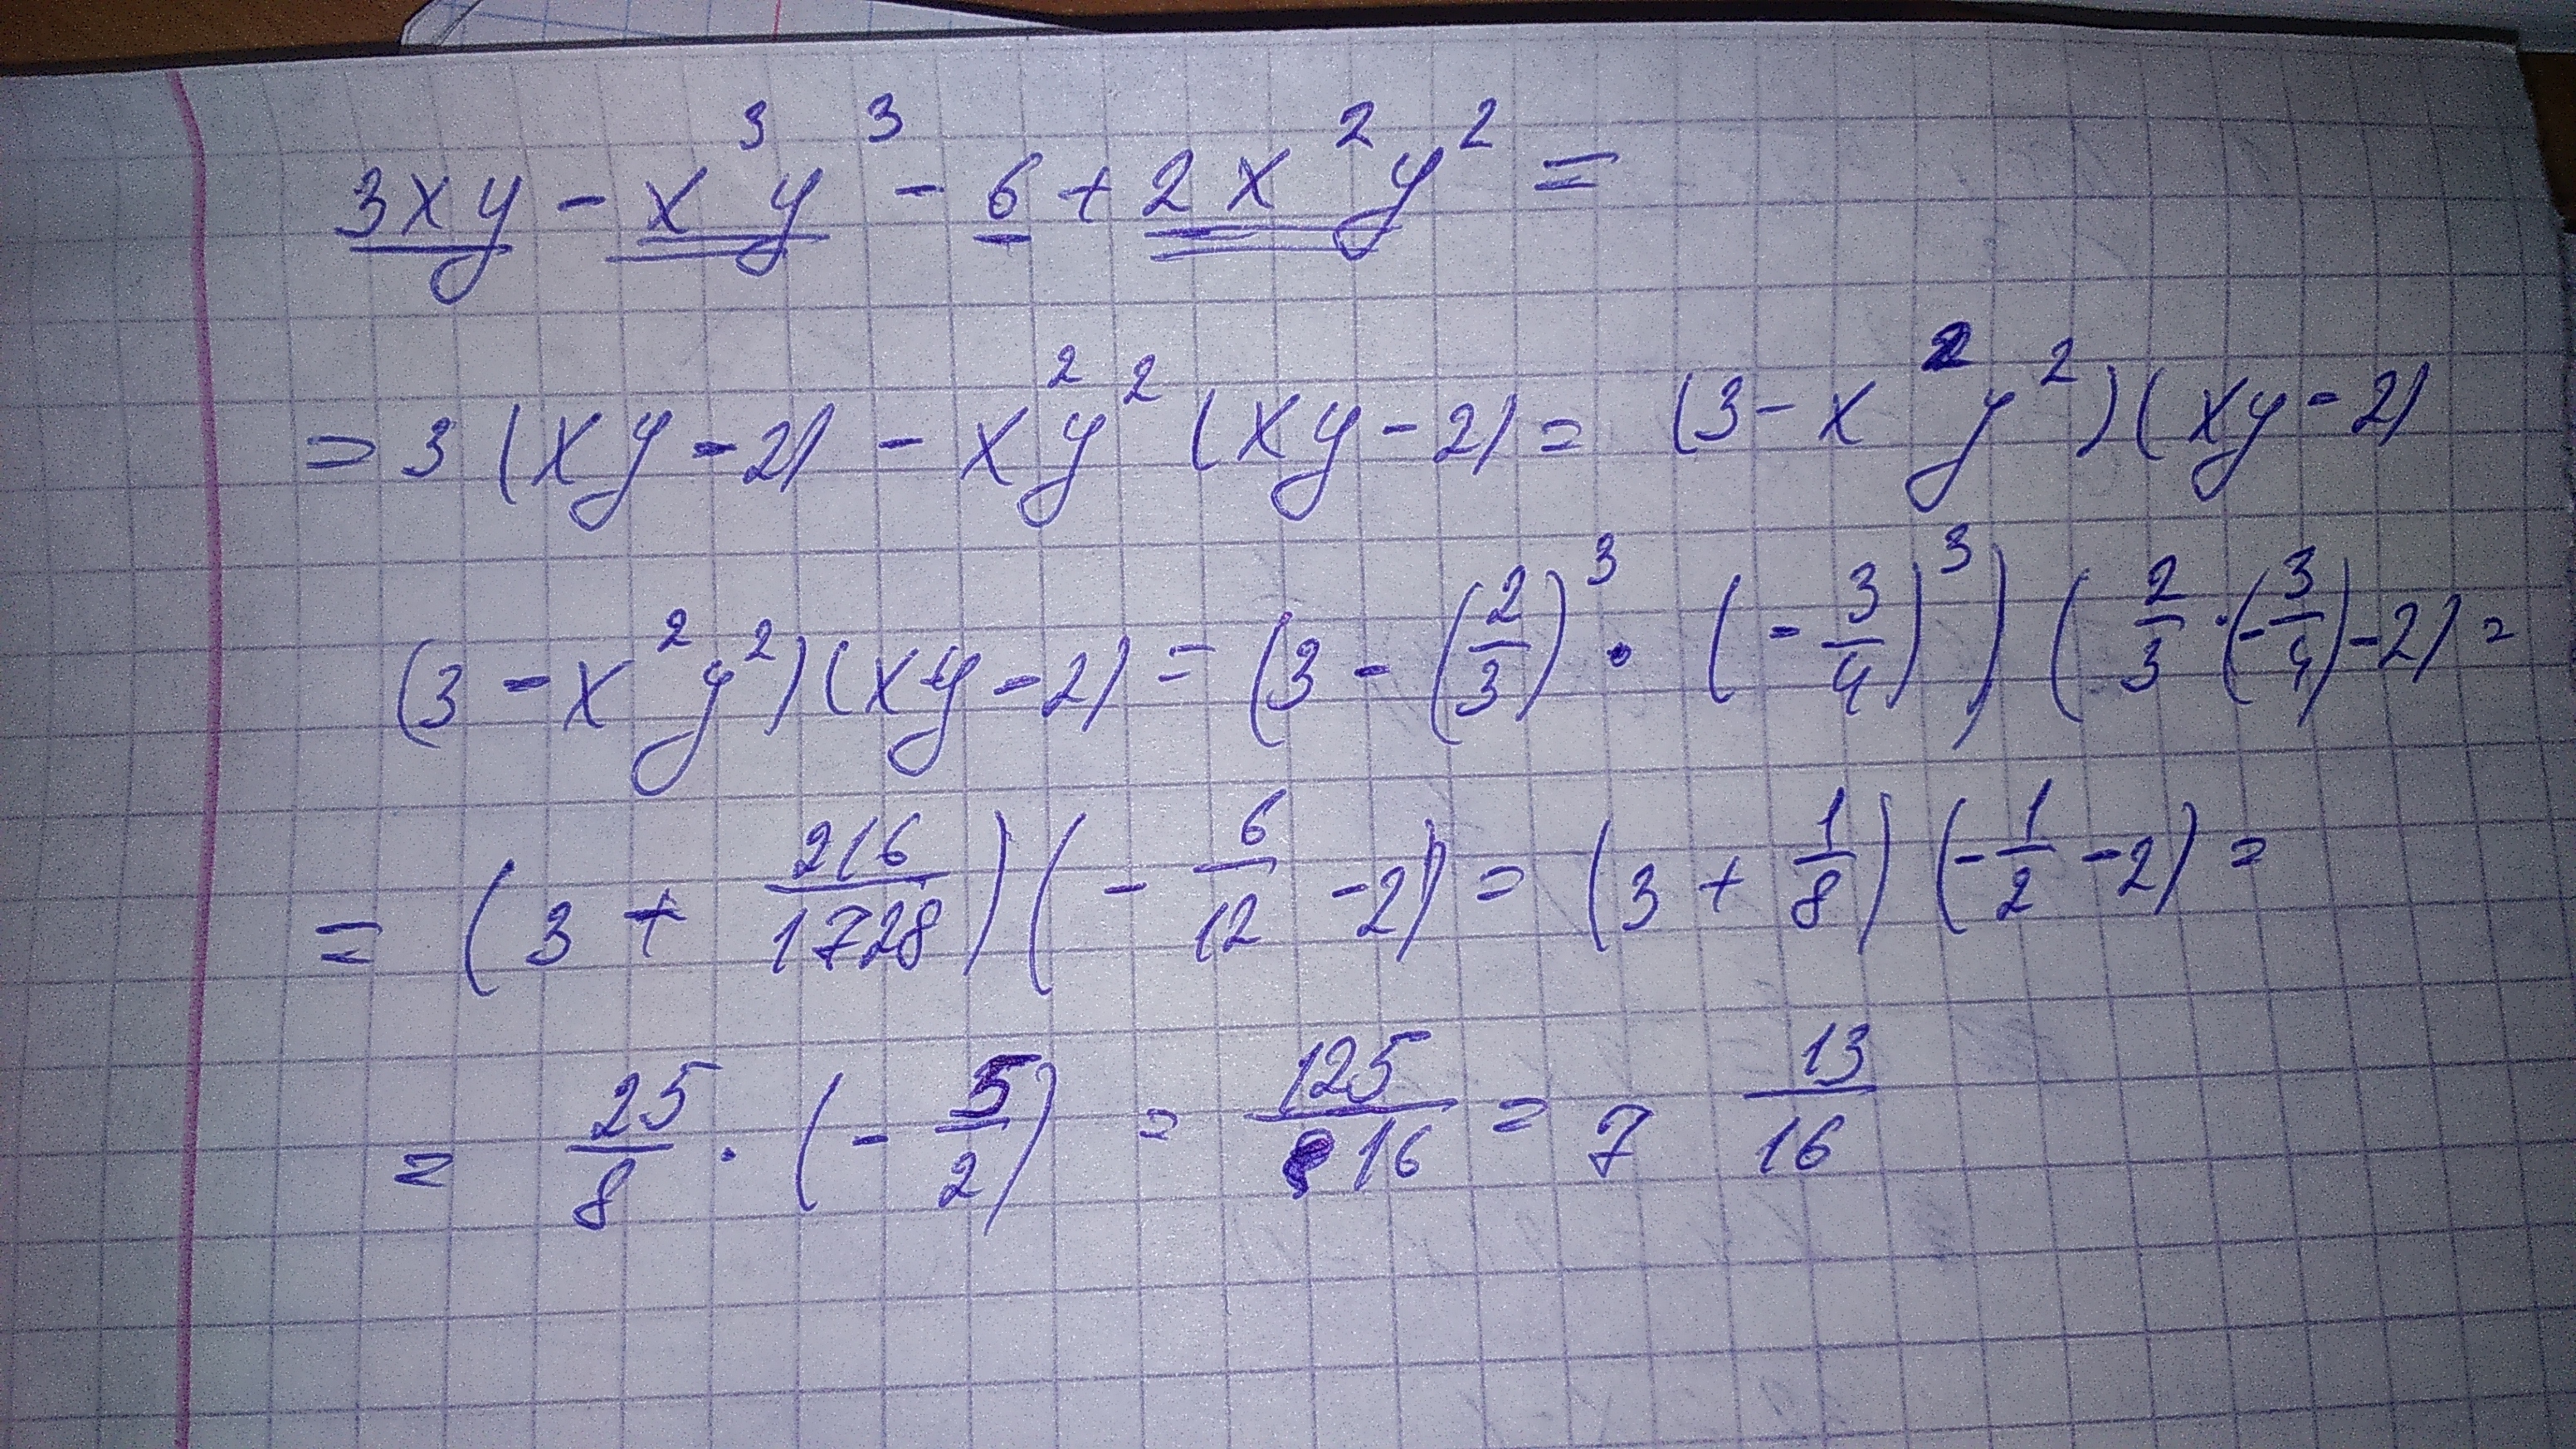 3xy - x³y³ - 6 + 2x²y² =
= 3(xy - 2) - x²y²(xy - 2) = (3 - x²y²)(xy - 2)
(3 - x²y²)(xy - 2) = (3 - (2/3)³ · (-3/4)³)(2/3 · (-3/4) - 2) =
= (3 + 216/1728)(-6/12 - 2) = (3 + 1/8)(-1/2 - 2) =
= 25/8 · (-5/2) = 125/16 = 7 13/16